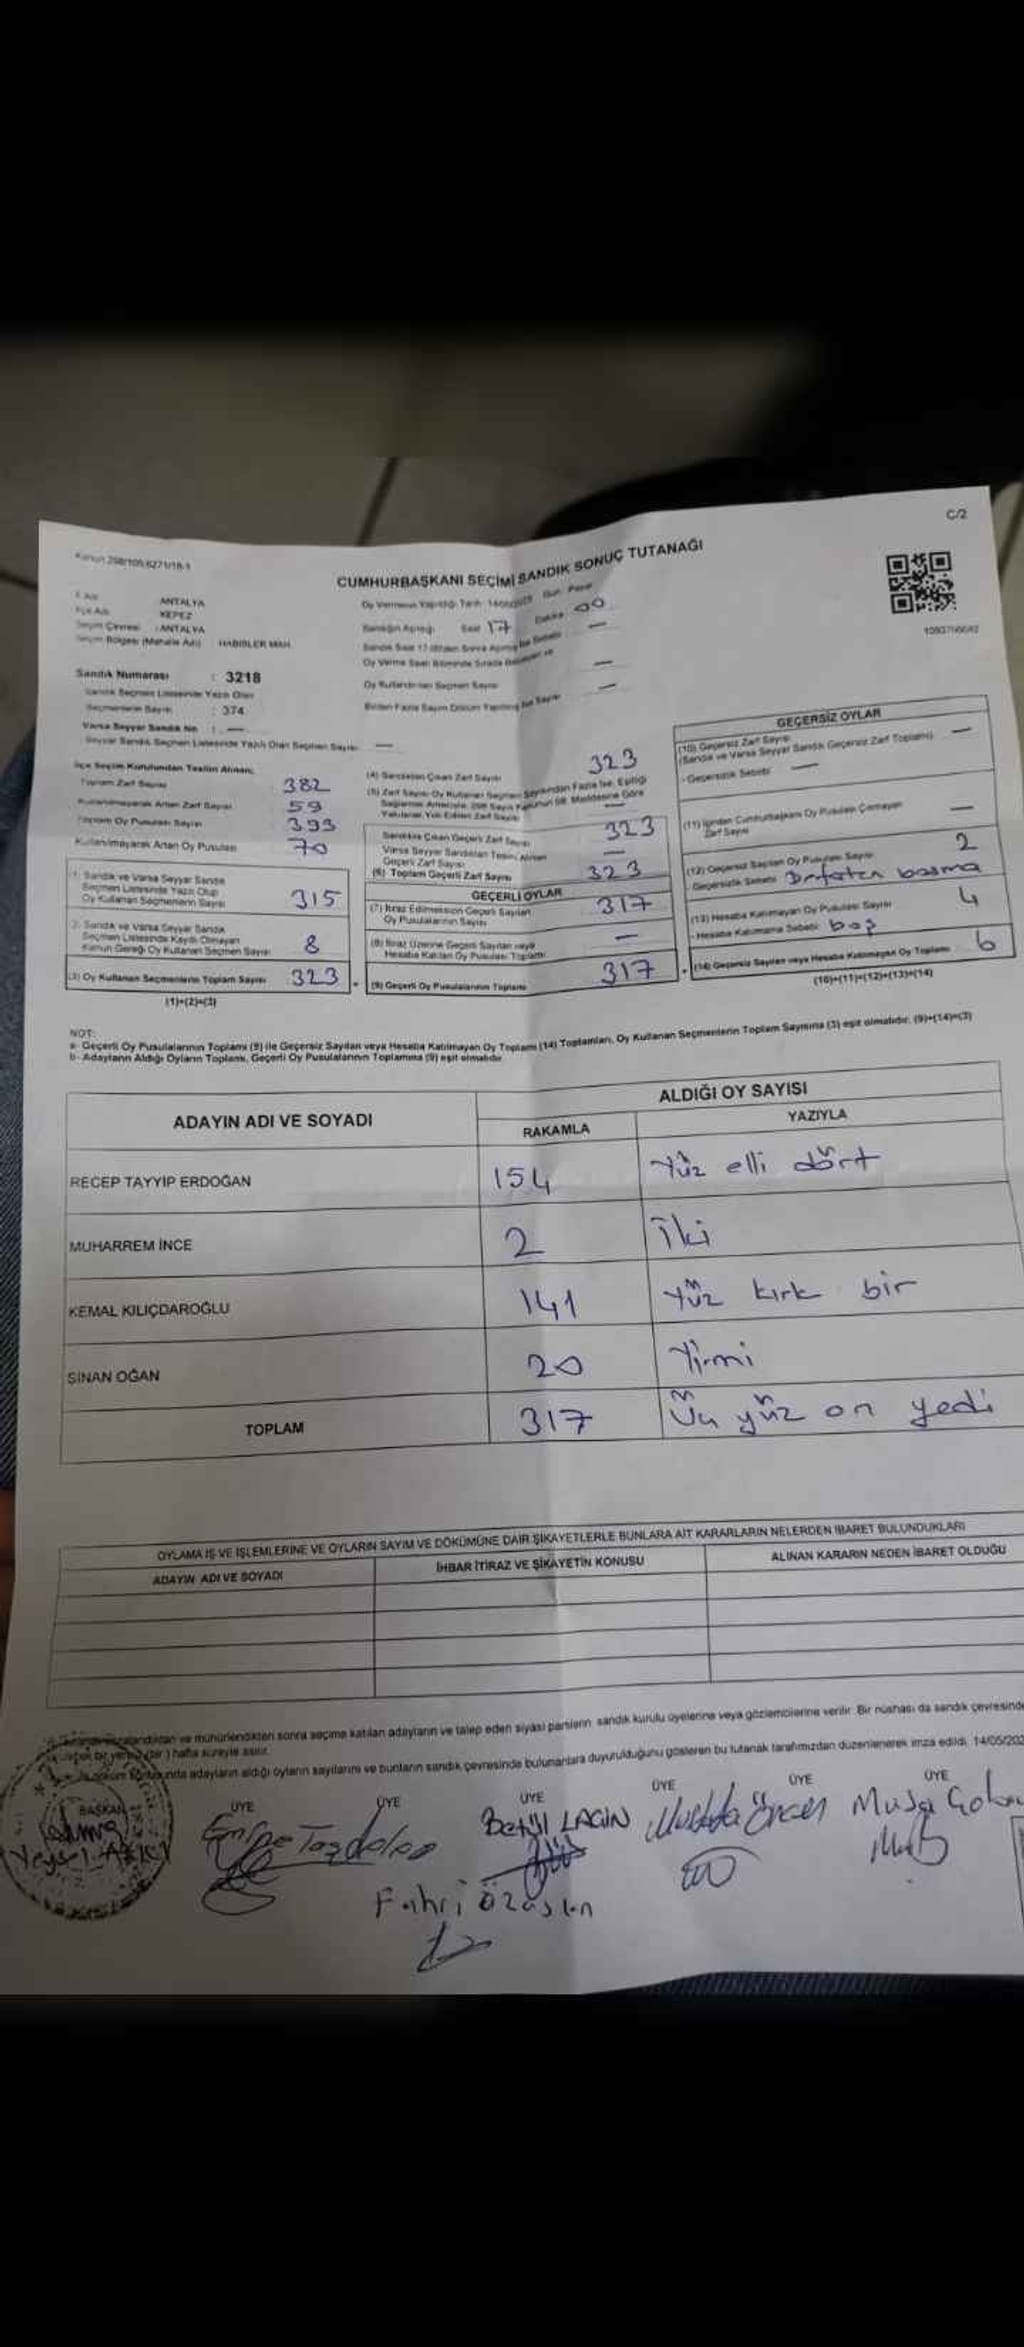 C/2
Kanun 298/105,6271/18-1
CUMHURBAŞKANI SEÇİMİ SANDIK SONUÇ TUTANAĞI
İl Adı ANTALYA
İlçe Adı KEPEZ
Seçim Çevresi : ANTALYA
Seçim Bölgesi (Mahalle Adı) HABİBLER MAH.
Sandık Numarası : 3218
Sandık Seçmen Listesinde Yazılı Olan
Seçmenlerin Sayısı : 374
Varsa Seyyar Sandık No : —
Seyyar Sandık Seçmen Listesinde Yazılı Olan Seçmen Sayısı —
Oy Vermenin Yapıldığı Tarih Gün: Pazar
Sandığın Açılışı Saat 17 Dakika 00
Oy Kullandırılan Seçmen Sayısı —
Birden Fazla Sayım Döküm Yapılmış İse Sayısı —
İlçe Seçim Kurulundan Teslim Alınan;
Toplam Zarf Sayısı 382
Kullanılmayarak Artan Zarf Sayısı 59
Toplam Oy Pusulası Sayısı 393
Kullanılmayarak Artan Oy Pusulası 70
1. Sandık ve Varsa Seyyar Sandık
Seçmen Listesinde Yazılı Olup
Oy Kullanan Seçmenlerin Sayısı 315
2. Sandık ve Varsa Seyyar Sandık
Seçmen Listesinde Kayıtlı Olmayan
Kanun Gereği Oy Kullanan Seçmen Sayısı 8
(3) Oy Kullanan Seçmenlerin Toplam Sayısı 323
(1)+(2)=(3)
(4) Sandıktan Çıkan Zarf Sayısı 323
(5) Zarf Sayısı Oy Kullanan Seçmen Sayısından Fazla İse, Eşitliği
Sağlamak Amacıyla 298 Sayılı Kanunun 98. Maddesine Göre
Yakılarak Yok Edilen Zarf Sayısı —
Sandıkta Çıkan Geçerli Zarf Sayısı 323
Varsa Seyyar Sandıktan Teslim Alınan
Geçerli Zarf Sayısı —
(6) Toplam Geçerli Zarf Sayısı 323
GEÇERLİ OYLAR
(7) İtiraz Edilmeksizin Geçerli Sayılan
Oy Pusulalarının Sayısı 317
(8) İtiraz Üzerine Geçerli Sayılan veya
Hesaba Katılan Oy Pusulası Toplamı —
(9) Geçerli Oy Pusulalarının Toplamı 317
GEÇERSİZ OYLAR
(10) Geçersiz Zarf Sayısı
(Sandık ve Varsa Seyyar Sandık Geçersiz Zarf Toplamı) —
- Geçersizlik Sebebi —
(11) İçinden Cumhurbaşkanı Oy Pusulası Çıkmayan
Zarf Sayısı —
(12) Geçersiz Sayılan Oy Pusulası Sayısı 2
- Geçersizlik Sebebi basma
(13) Hesaba Katılmayan Oy Pusulası Sayısı 4
- Hesaba Katılmama Sebebi: boş
(14) Geçersiz Sayılan veya Hesaba Katılmayan Oy Toplamı 6
(10)+(11)+(12)+(13)=(14)
NOT:
a- Geçerli Oy Pusulalarının Toplamı (9) ile Geçersiz Sayılan veya Hesaba Katılmayan Oy Toplamı (14) Toplamları, Oy Kullanan Seçmenlerin Toplam Sayısına (3) eşit olmalıdır. (9)+(14)=(3)
b- Adayların Aldığı Oyların Toplamı, Geçerli Oy Pusulalarının Toplamına (9) eşit olmalıdır
ADAYIN ADI VE SOYADI ALDIĞI OY SAYISI
RAKAMLA YAZIYLA
RECEP TAYYİP ERDOĞAN 154 Yüz elli dört
MUHARREM İNCE 2 İki
KEMAL KILIÇDAROĞLU 141 Yüz kırk bir
SİNAN OĞAN 20 Yirmi
TOPLAM 317 Üç yüz on yedi
OYLAMA İŞ VE İŞLEMLERİNE VE OYLARIN SAYIM VE DÖKÜMÜNE DAİR ŞİKAYETLERLE BUNLARA AİT KARARLARIN NELERDEN İBARET BULUNDUKLARI
ADAYIN ADI VE SOYADI İHBAR İTİRAZ VE ŞİKAYETİN KONUSU ALINAN KARARIN NEDEN İBARET OLDUĞU
ve mühürlendikten sonra seçime katılan adayların ve talep eden siyasi partilerin sandık kurulu üyelerine veya gözlemcilerine verilir. Bir nüshası da sandık çevresinde
(bir) hafta süreyle asılır.
adayların aldığı oyların sayılarını ve bunların sandık çevresinde bulunanlara duyurulduğunu gösteren bu tutanak tarafımızdan düzenlenerek imza edildi. 14/05/202
BAŞKAN ÜYE ÜYE ÜYE ÜYE ÜYE ÜYE
Betül LAÇİN
Fahri Özaslan